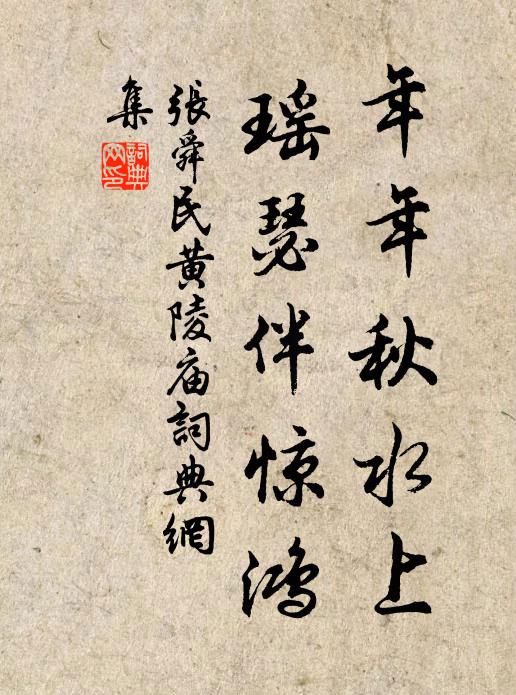 年年秋水上
瑶瑟伴惊鸿
張舜民黄陵庙詞典網
集
詞典
网印